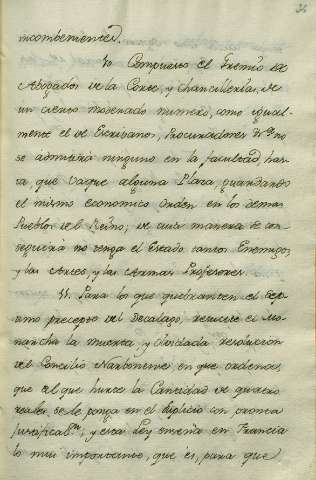 36
incombenientes.
10 Compuesto el Gremio de
Abogados de la Corte, y Chancillerias, de
un cierto moderado numero, como igual-
mente el de Escribanos, Procuradores no
se admitirá ninguno en la facultad, has-
ta que vaque alguna Plaza, guardando
el mismo economico orden en los demas
Pueblos del Reino; de cuia manera se con-
seguirá no tenga el Estado tantos Enemigos,
y las Artes, y las Armas Profesores.
11. Para los que quebranten el sep-
timo precepto del Decalogo, resucite el Mo-
narcha la muerta, y olvidada resolucion
del Concilio Narbonense en que ordenó,
que al que hurte la Cantidad de quatro
reales, se le ponga en el suplicio con prompta
y esta Ley enseña en Francia
lo mui importante, que es, para que